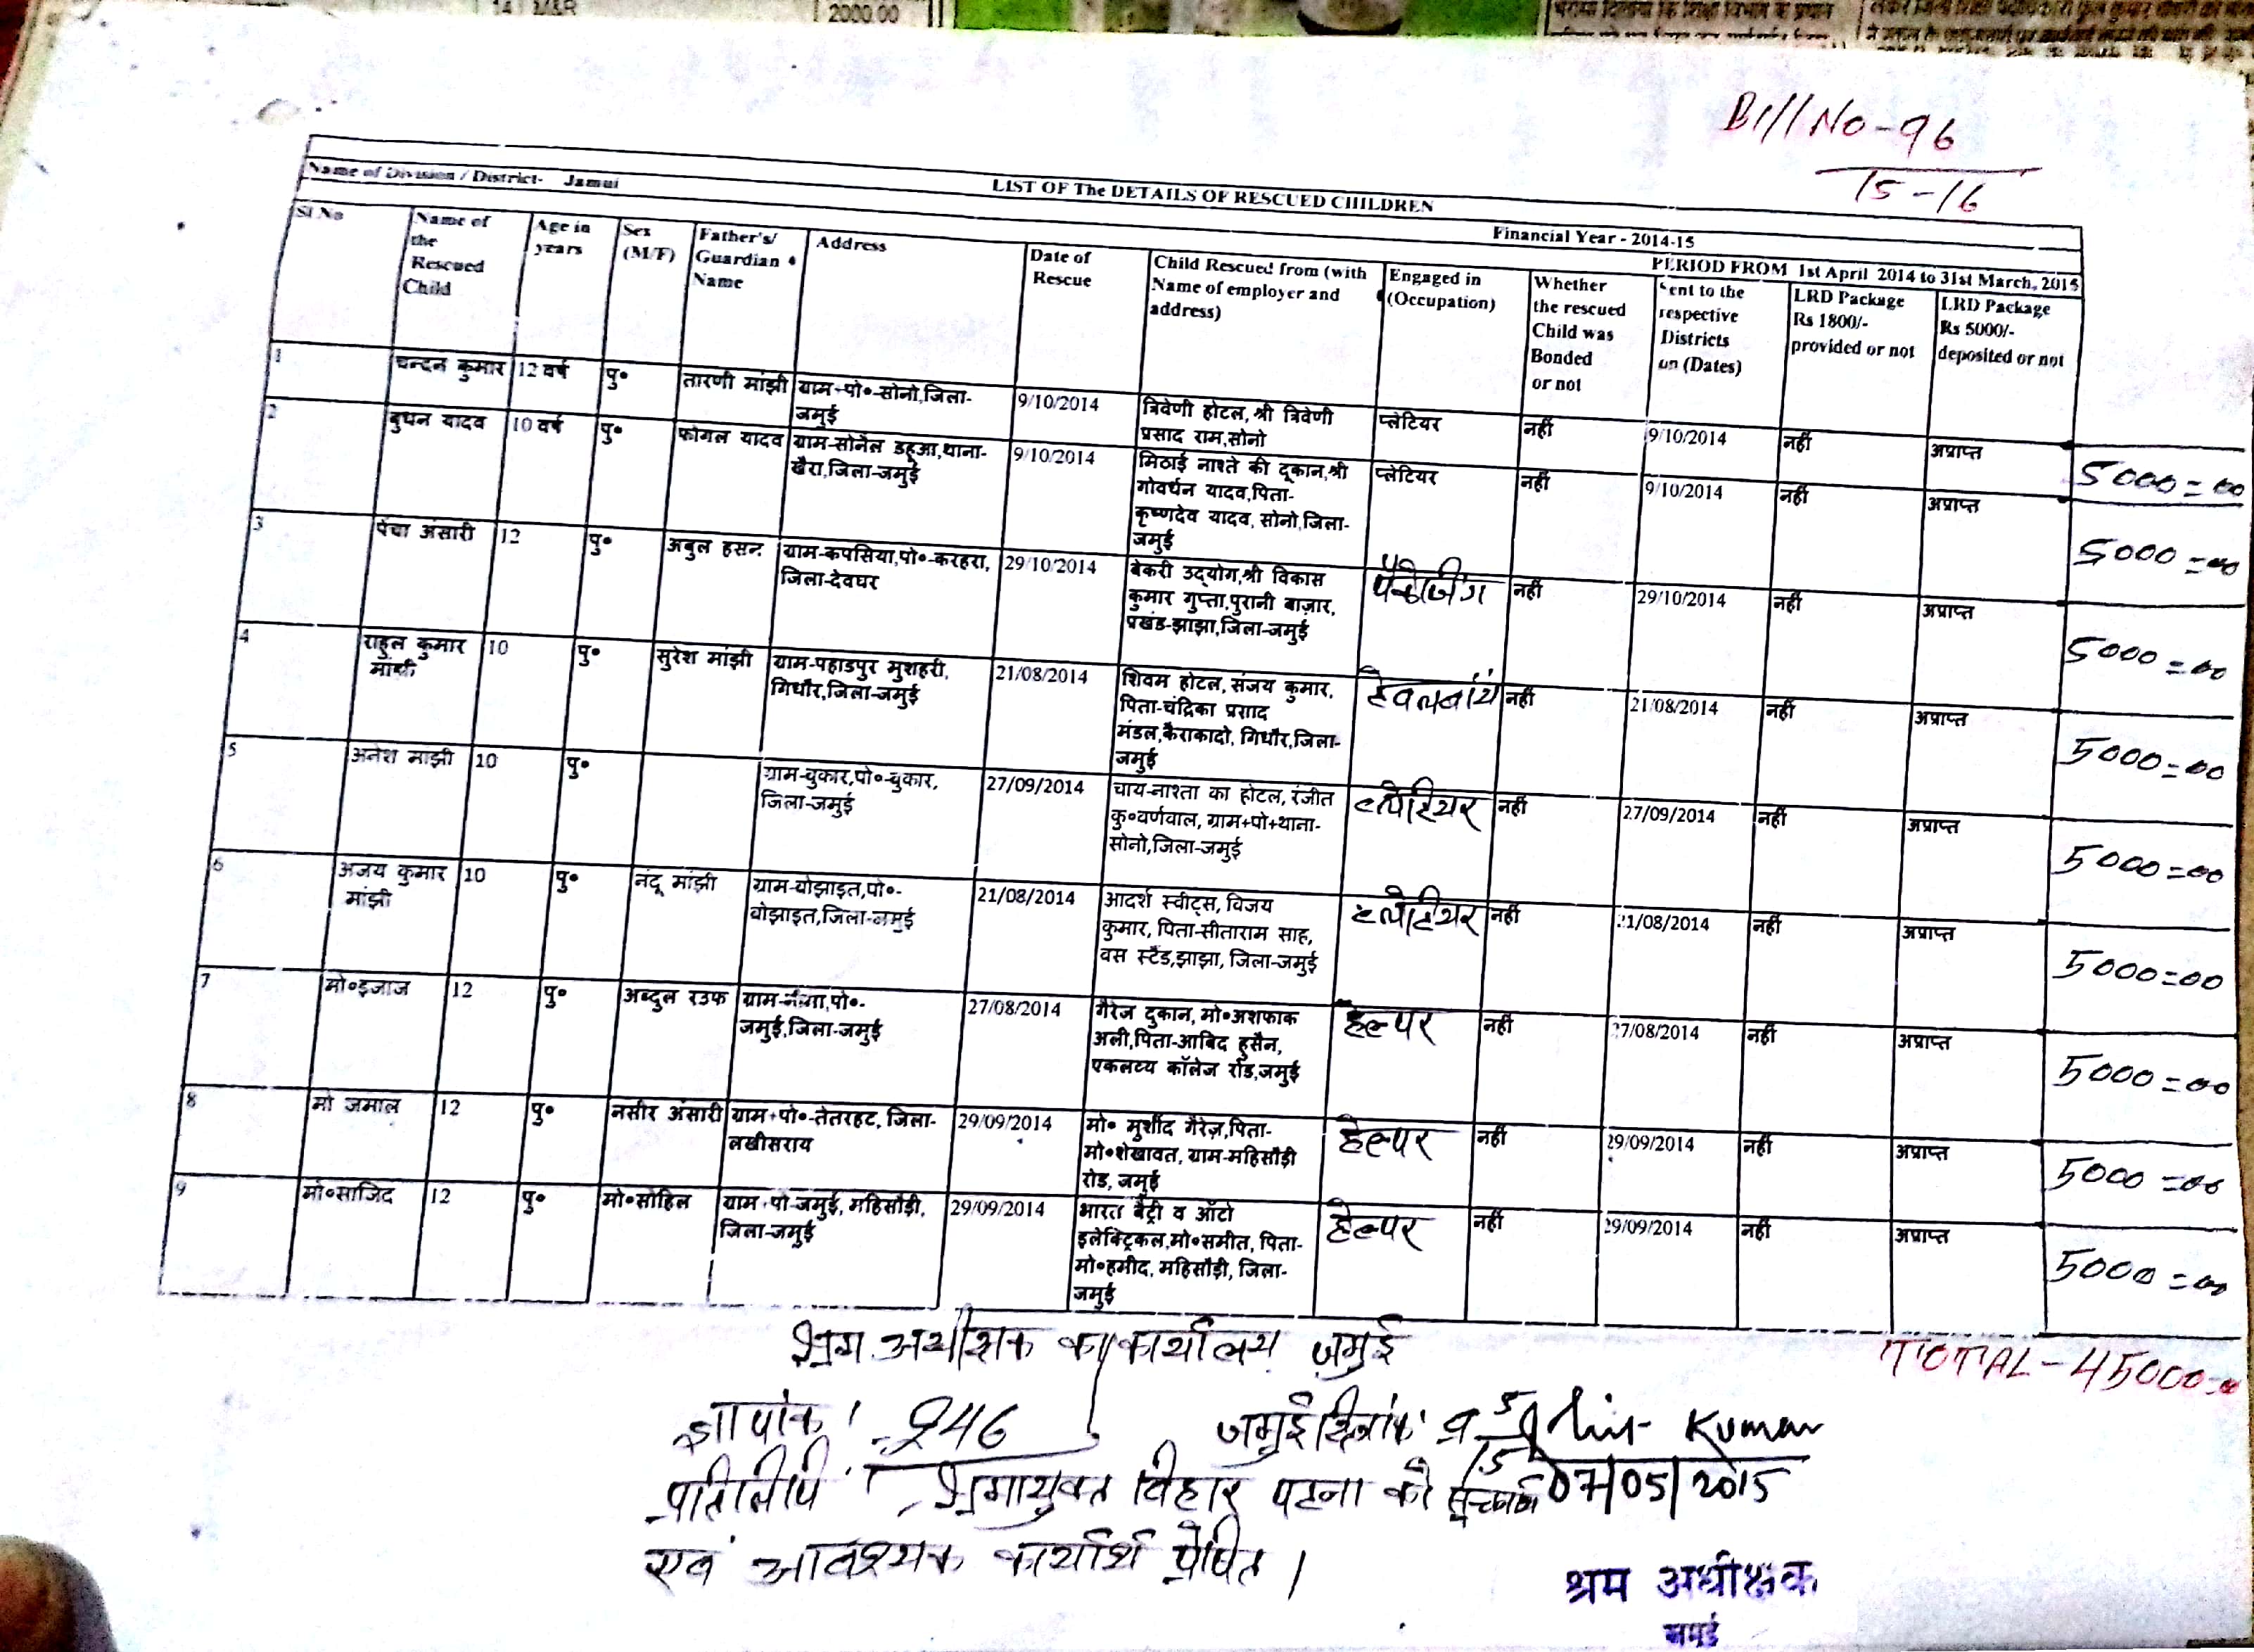 14 MSR
2000.00
Bill No - 96
15-16
LIST OF The DETAILS OF RESCUED CHILDREN
Name of Division / District- Jamui
Financial Year - 2014-15
PERIOD FROM 1st April 2014 to 31st March, 2015
Sl No
Name of the Rescued Child
Age in years
Sex (M/F)
Father's/ Guardian Name
Address
Date of Rescue
Child Rescued from (with Name of employer and address)
Engaged in (Occupation)
Whether the rescued Child was Bonded or not
Sent to the respective Districts on (Dates)
LRD Package Rs 1800/- provided or not
LRD Package Rs 5000/- deposited or not
1 चन्दन कुमार 12 वर्ष पु० तारणी मांझी ग्राम+पो०-सोनो,जिला-जमुई 9/10/2014 त्रिवेणी होटल, श्री त्रिवेणी प्रसाद राम,सोनो प्लेटियर नहीं 9/10/2014 नहीं अप्राप्त 5000=00
2 बुधन यादव 10 वर्ष पु० फोगल यादव ग्राम-सोनैल डहूआ,थाना-खैरा,जिला-जमुई 9/10/2014 मिठाई नाश्ते की दूकान,श्री गोवर्धन यादव,पिता-कृष्णदेव यादव, सोनो,जिला-जमुई प्लेटियर नहीं 9/10/2014 नहीं अप्राप्त 5000=00
3 पंचा अंसारी 12 पु० अबुल हसन ग्राम-कपसिया,पो०-करहरा, जिला-देवघर 29/10/2014 बेकरी उद्योग,श्री विकास कुमार गुप्ता,पुरानी बाज़ार, प्रखंड-झाझा,जिला-जमुई पैकेजिंग नहीं 29/10/2014 नहीं अप्राप्त 5000=00
4 राहुल कुमार मांझी 10 पु० सुरेश मांझी ग्राम-पहाडपुर मुशहरी, गिधौर,जिला-जमुई 21/08/2014 शिवम होटल, संजय कुमार, पिता-चंद्रिका प्रसाद मंडल,कैराकादो, गिधौर,जिला-जमुई नहीं 21/08/2014 नहीं अप्राप्त 5000=00
5 अनेश माझी 10 पु० ग्राम-चुकार,पो०-चुकार, जिला-जमुई 27/09/2014 चाय-नाश्ता का होटल, रंजीत कु०वर्णवाल, ग्राम+पो+थाना-सोनो,जिला-जमुई नहीं 27/09/2014 नहीं अप्राप्त 5000=00
6 अजय कुमार मांझी 10 पु० नंदू मांझी ग्राम-बोझाइत,पो०-बोझाइत,जिला-जमुई 21/08/2014 आदर्श स्वीट्स, विजय कुमार, पिता-सीताराम साह, वस स्टैंड,झाझा, जिला-जमुई नहीं 21/08/2014 नहीं अप्राप्त 5000=00
7 मो०इजाज 12 पु० अब्दुल रउफ पो०-जमुई,जिला-जमुई 27/08/2014 गैरेज दुकान, मो०अशफाक अली,पिता-आबिद हुसैन, एकलव्य कॉलेज रोड,जमुई हेल्पर नहीं 27/08/2014 नहीं अप्राप्त 5000=00
8 मो जमाल 12 पु० नसीर अंसारी ग्राम+पो०-तेतरहट, जिला-लखीसराय 29/09/2014 मो० मुर्शीद गैरेज़,पिता-मो०शेखावत, ग्राम-महिसौड़ी रोड, जमुई हेल्पर नहीं 29/09/2014 नहीं अप्राप्त 5000=00
9 मो०साजिद 12 पु० मो०सोहिल ग्राम+पो-जमुई, महिसौड़ी, जिला-जमुई 29/09/2014 भारत बैट्री व ऑटो इलेक्ट्रिकल,मो०समीत, पिता-मो०हमीद, महिसौड़ी, जिला-जमुई हेल्पर नहीं 29/09/2014 नहीं अप्राप्त 5000=00
TOTAL - 45000=00
श्रम अधीक्षक का कार्यालय जमुई
ज्ञापांक 246 जमुई दिनांक Kumar
प्रतिलिपि श्रमायुक्त बिहार पटना को सूचनार्थ 07/05/2015
एवं आवश्यक कार्यार्थ प्रेषित।
श्रम अधीक्षक
जमुई